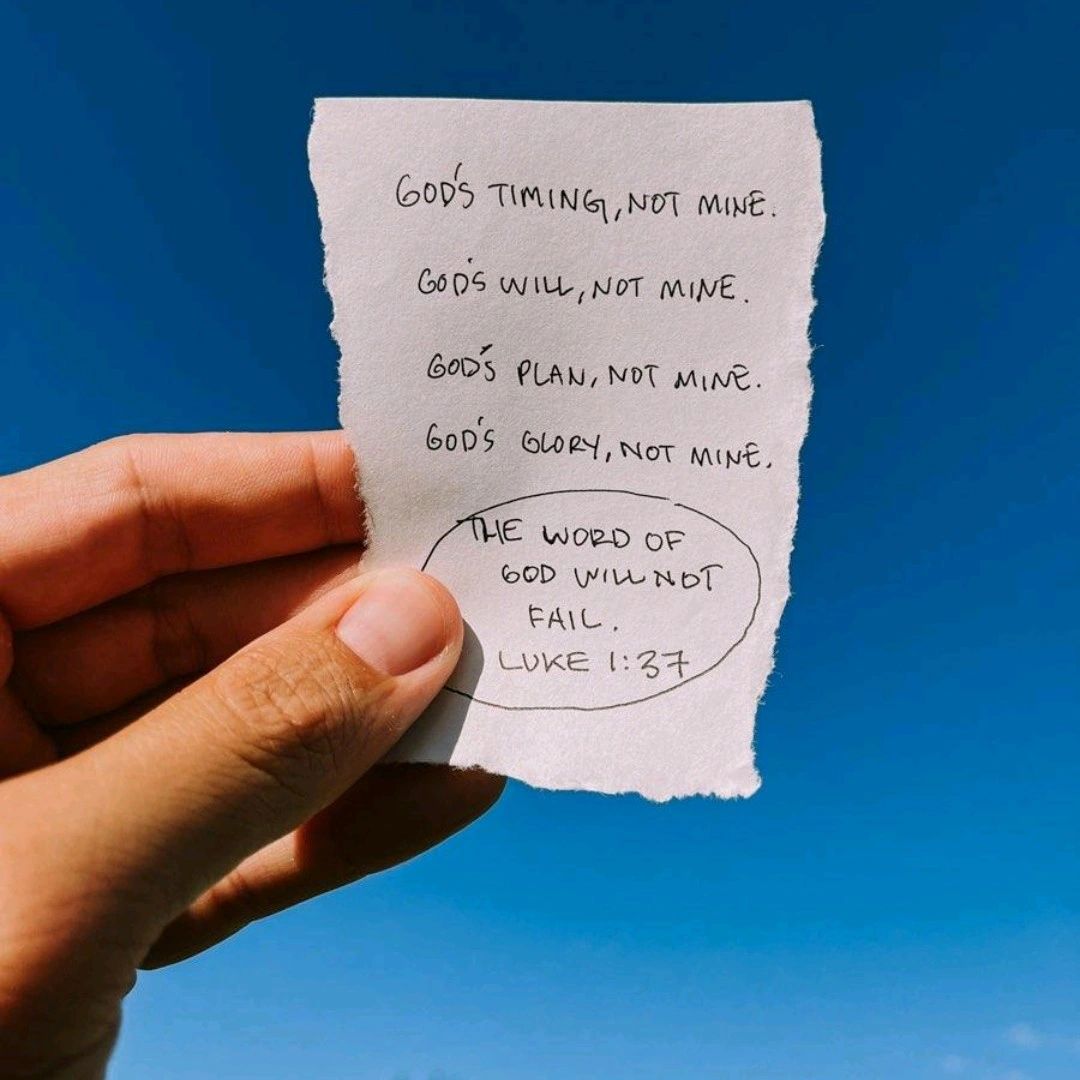 GOD'S TIMING, NOT MINE.
GOD'S WILL, NOT MINE.
GOD'S PLAN, NOT MINE.
GOD'S GLORY, NOT MINE.
THE WORD OF
GOD WILL NOT
FAIL.
LUKE 1:37